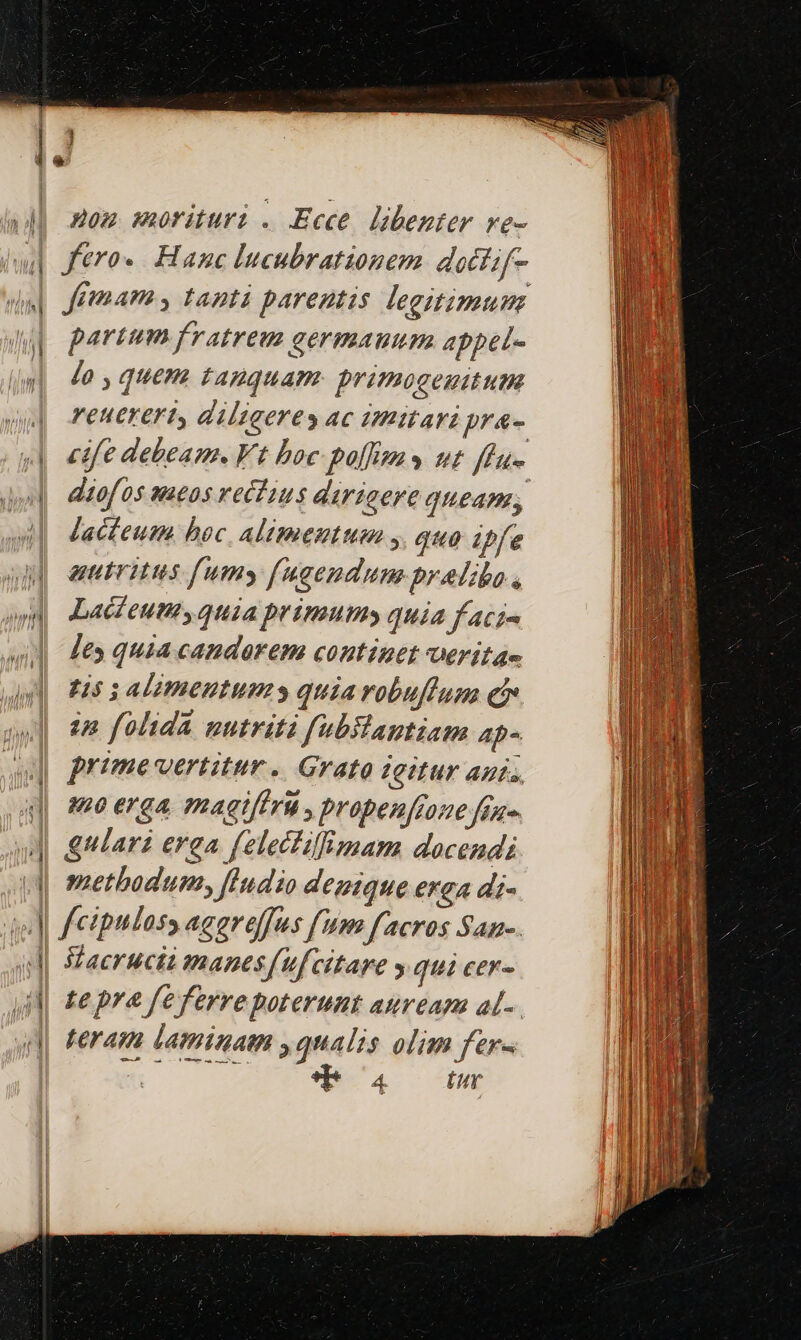 non morituri . Ecce libenter re-
fero. Hanc lucubrationem doctiſ-
ſimam, tanti parentis legitimum
partum fratrem germanum appel-
lo, quem tanquam primogenitum
reuereri, diligere, ac imitari præ-
ciſe debeam. Vt hoc poſſim, ut ſtu-
dioſos meos rectius dirigere queam,
lacteum hoc alimentum, quo ipſe
nutritus ſum, ſugendum prælibo.
Lacteum, quia primum, quia faci-
le, quia candorem continet verita-
tis; alimentum, quia robuſtum &
in ſolidā nutriti ſubſtantiam ap-
prime vertitur. Grato igitur ani-
mo erga magiſtrū, propenſione ſin-
gulari erga ſelectiſſimam docendi
methodum, ſtudio denique erga di-
ſcipulos, aggreſſus ſum ſacros San-
ſtacrucii manes ſuſcitare, qui cer-
te præ ſe ferre poterunt auream al-
teram laminam, qualis olim fer-
✠ 4 tur